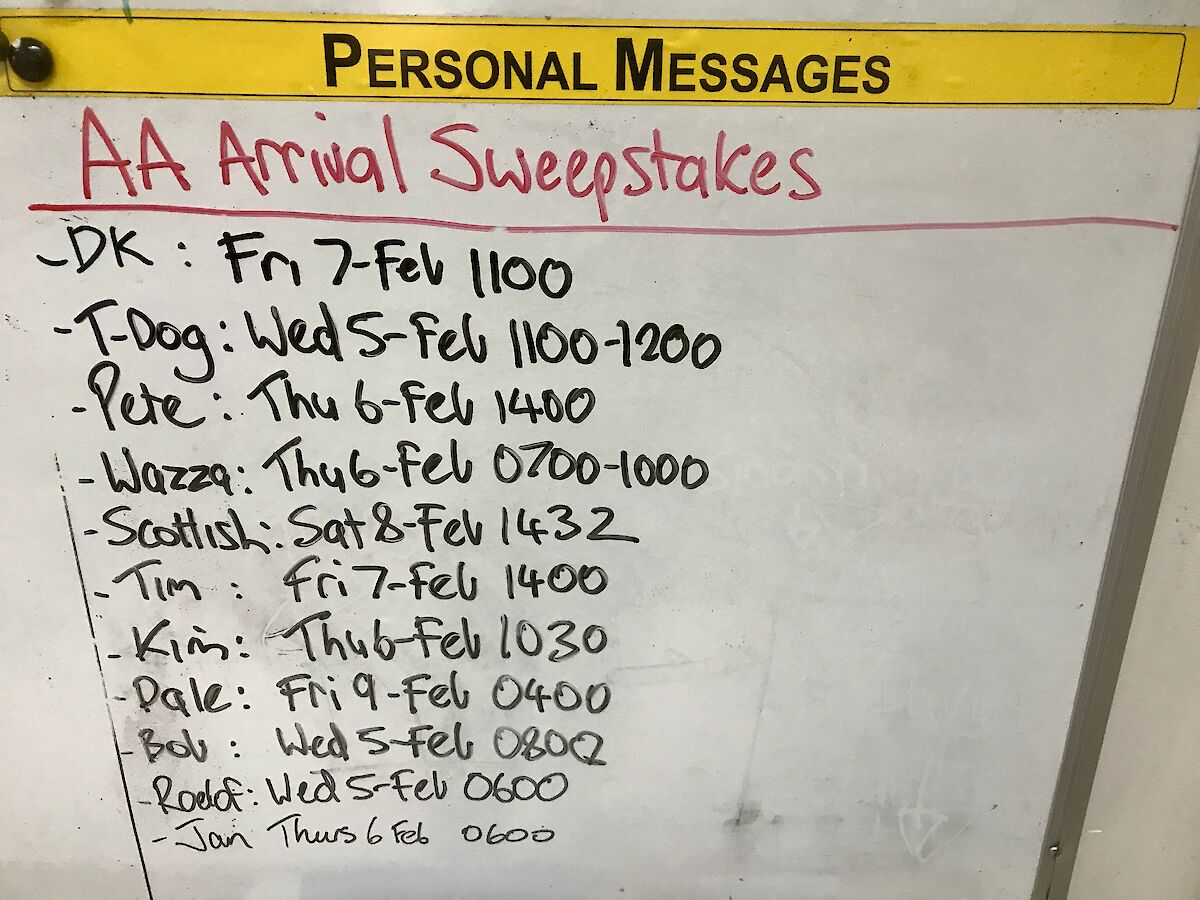 PERSONAL MESSAGES
AA Arrival Sweepstakes
- DK : Fri 7-Feb 1100
- T-Dog : Wed 5-Feb 1100-1200
- Pete : Thu 6-Feb 1400
- Wazza : Thu 6-Feb 0700-1000
- Scottish : Sat 8-Feb 1432
- Tim : Fri 7-Feb 1400
- Kim : Thu 6-Feb 1030
- Dale : Fri 9-Feb 0400
- Bob : Wed 5-Feb 0802
- Roelof : Wed 5-Feb 0600
- Jan Thurs 6 Feb 0600